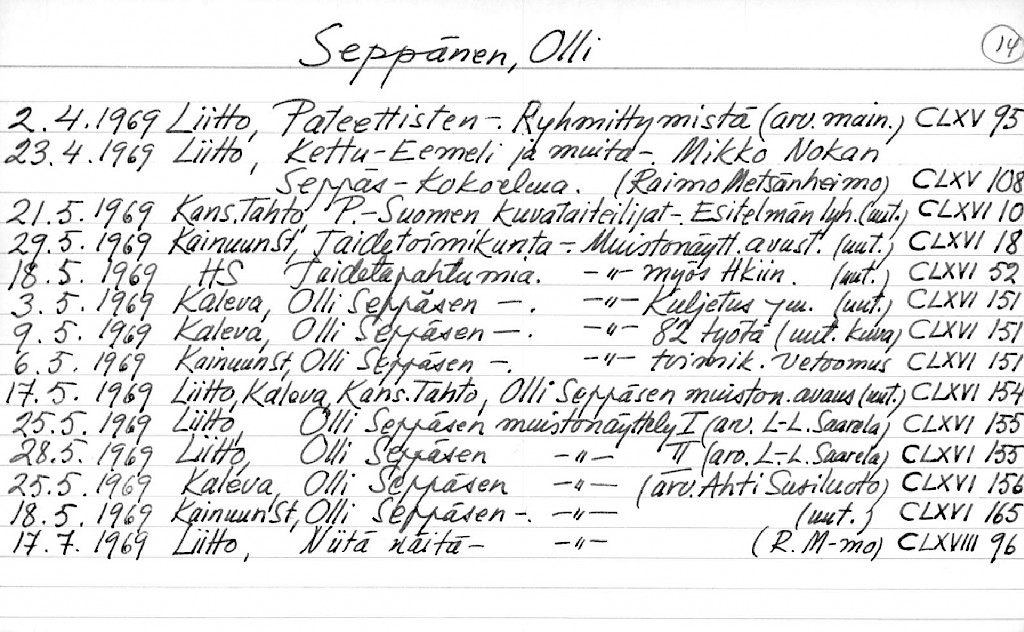 Seppänen, Olli 14
2.4.1969 Liitto, Pateettisten -. Ryhmittymistä (arv. main.) CLXV 95
23.4.1969 Liitto, Kettu-Eemeli ja muita -. Mikko Nokan
Seppäs-kokoelma. (Raimo Metsänheimo) CLXV 108
21.5.1969 Kans.Tahto P.-Suomen kuvataiteilijat - Esitelmän lyh. (uut.) CLXVI 10
29.5.1969 KainuunSt, Taidetoimikunta -. Muistonäytt. avust. (uut.) CLXVI 18
18.5.1969 HS Taidetapahtumia. -"- myös Hkiin. (uut.) CLXVI 52
3.5.1969 Kaleva, Olli Seppäsen -. -"- Kuljetus ym. (uut.) CLXVI 151
9.5.1969 Kaleva, Olli Seppäsen -. -"- 82 työtä (uut. kuva) CLXVI 151
6.5.1969 KainuunSt, Olli Seppäsen -. -"- toimik. vetoomus CLXVI 151
17.5.1969 Liitto, Kaleva, Kans.Tahto, Olli Seppäsen muiston. avaus (uut.) CLXVI 154
25.5.1969 Liitto, Olli Seppäsen muistonäyttely I (arv. L-L. Saarela) CLXVI 155
28.5.1969 Liitto, Olli Seppäsen -"- II (arv. L-L. Saarela) CLXVI 155
25.5.1969 Kaleva, Olli Seppäsen -"- (arv. Ahti Susiluoto) CLXVI 156
18.5.1969 KainuunSt, Olli Seppäsen -. -"- (uut.) CLXVI 165
17.7.1969 Liitto, Niitä näitä - -"- (R. M-mo) CLXVIII 96